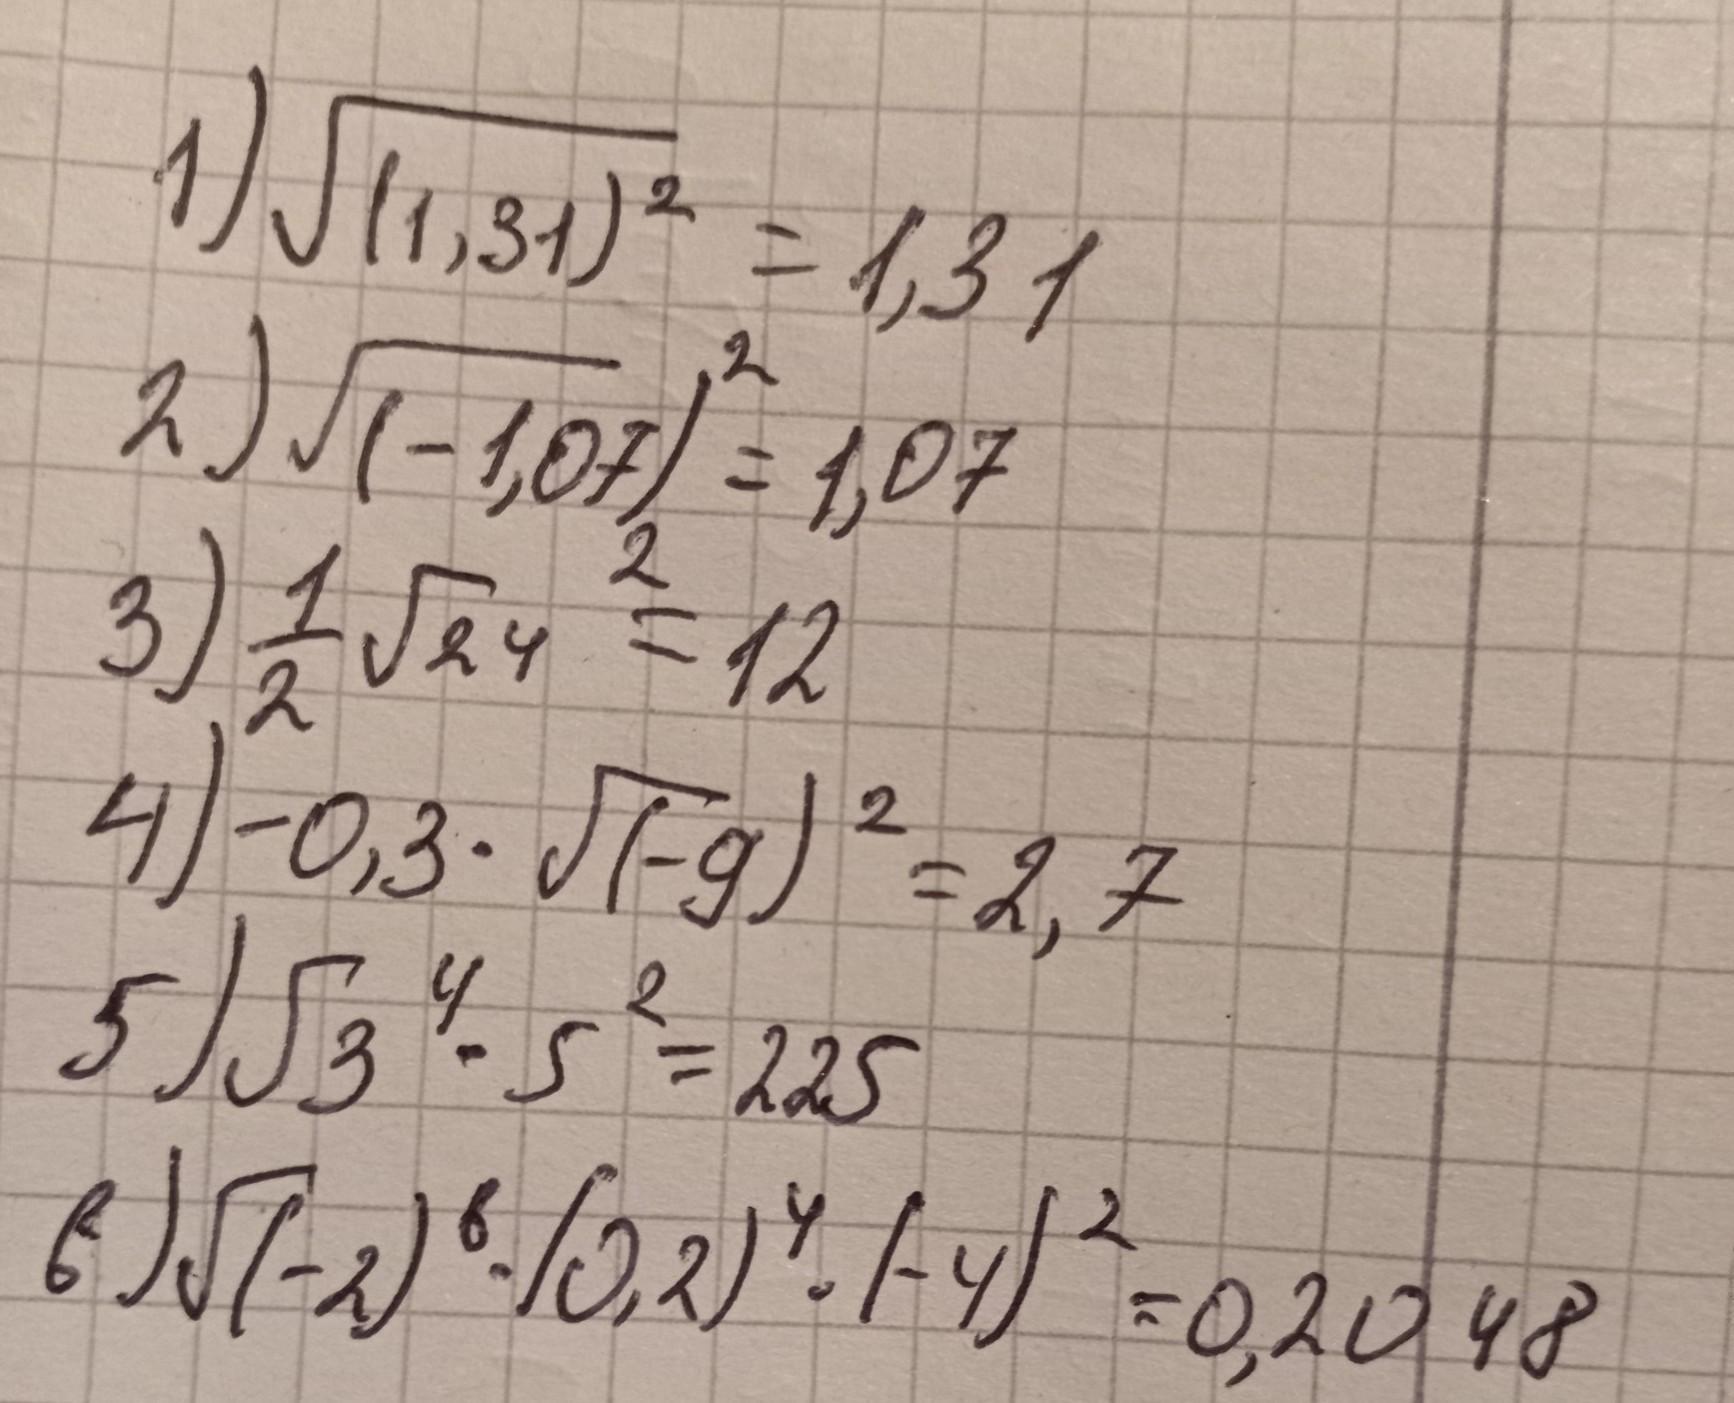 1) √(1,31)² = 1,31
2) √(-1,07)² = 1,07
3) 1/2 √24² = 12
4) -0,3 · √(-9)² = 2,7
5) √3⁴ · 5² = 225
6) √(-2)⁶ · (0,2)⁴ · (-4)² = 0,2048